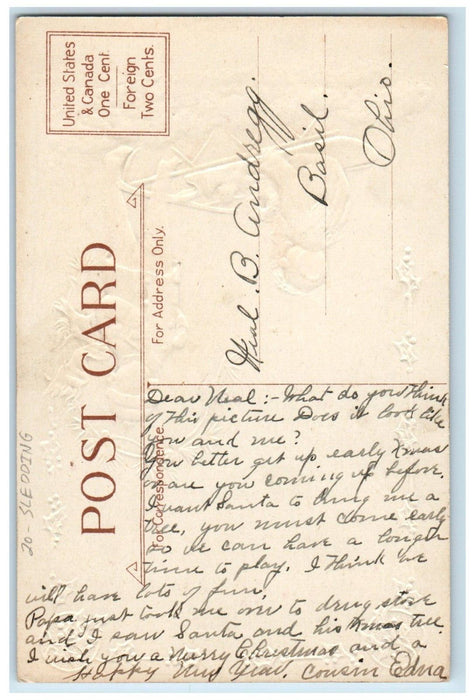 United States
& Canada
One Cent
Foreign
Two Cents.
POST CARD
For Address Only.
For Correspondence.
Neal. B. Andregg.
Basil.
Ohio.
Dear Neal:- What do you think
of this picture Does it look like
you and me?
You better get up early Xmas
or are you coming up before.
I want Santa to bring me a
tree, you must come early
so we can have a longer
time to play. I think we
will have lots of fun.
Papa just took me over to drug store
and I saw Santa and his Xmas tree
I wish you a Merry Christmas and a
Happy New Year. Cousin Edna
20 - SLEDDING